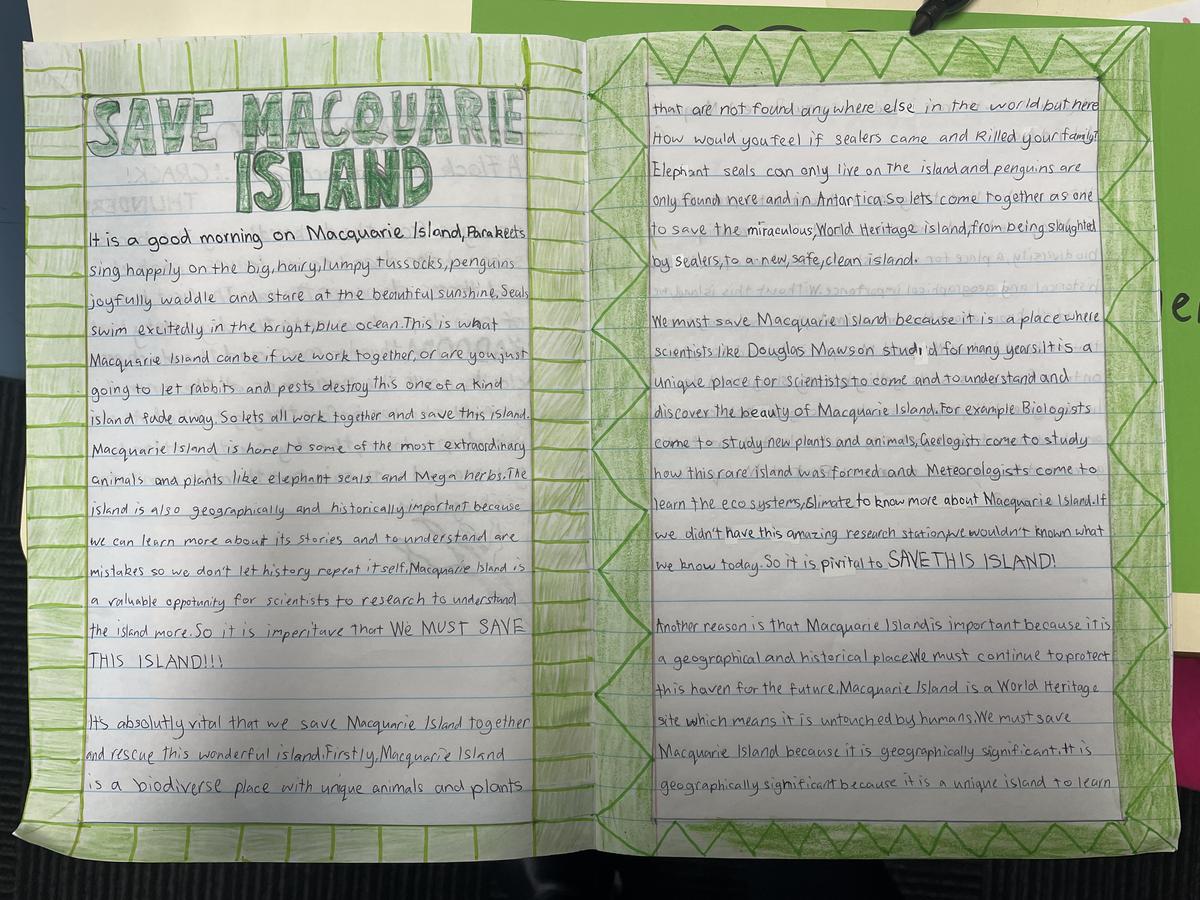 SAVE MACQUARIE
ISLAND
It is a good morning on Macquarie Island, Parakeets
sing happily on the big, hairy, lumpy tussocks, penguins
joyfully waddle and stare at the beautiful sunshine, Seals
swim excitedly in the bright, blue ocean. This is what
Macquarie Island can be if we work together, or are you just
going to let rabbits and pests destroy this one of a kind
island fade away. So lets all work together and save this island.
Macquarie Island is home to some of the most extraordinary
animals and plants like elephant seals and Mega herbs. The
island is also geographically and historically important because
we can learn more about its stories and to understand are
mistakes so we don't let history repeat itself. Macquarie Island is
a valuable oppotunity for scientists to research to understand
the island more. So it is imperitave that We MUST SAVE
THIS ISLAND!!!
It's absolutly vital that we save Macquarie Island together
and rescue this wonderful island. Firstly, Macquarie Island
is a biodiverse place with unique animals and plants
that are not found anywhere else in the world but here
How would you feel if sealers came and killed your family?
Elephant seals can only live on The island and penguins are
only found here and in Antartica. So lets come together as one
to save the miraculous, World Heritage island, from being slaughted
by sealers, to a new, safe, clean island.
We must save Macquarie Island because it is a place where
scientists like Douglas Mawson studi d for many years. It is a
unique place for scientists to come and to understand and
discover the beauty of Macquarie Island. For example Biologists
come to study new plants and animals, Geologist come to study
how this rare island was formed and Meteorologists come to
learn the eco systems, &limate to know more about Macquarie Island. If
we didn't have this amazing research station, we wouldn't known what
we know today. So it is pivital to SAVE THIS ISLAND!
Another reason is that Macquarie Island is important because it is
a geographical and historical place. We must continue to protect
this haven for the future. Macquarie Island is a World Heritage
site which means it is untouched by humans. We must save
Macquarie Island because it is geographically significant. It is
geographically significant because it is a unique island to learn